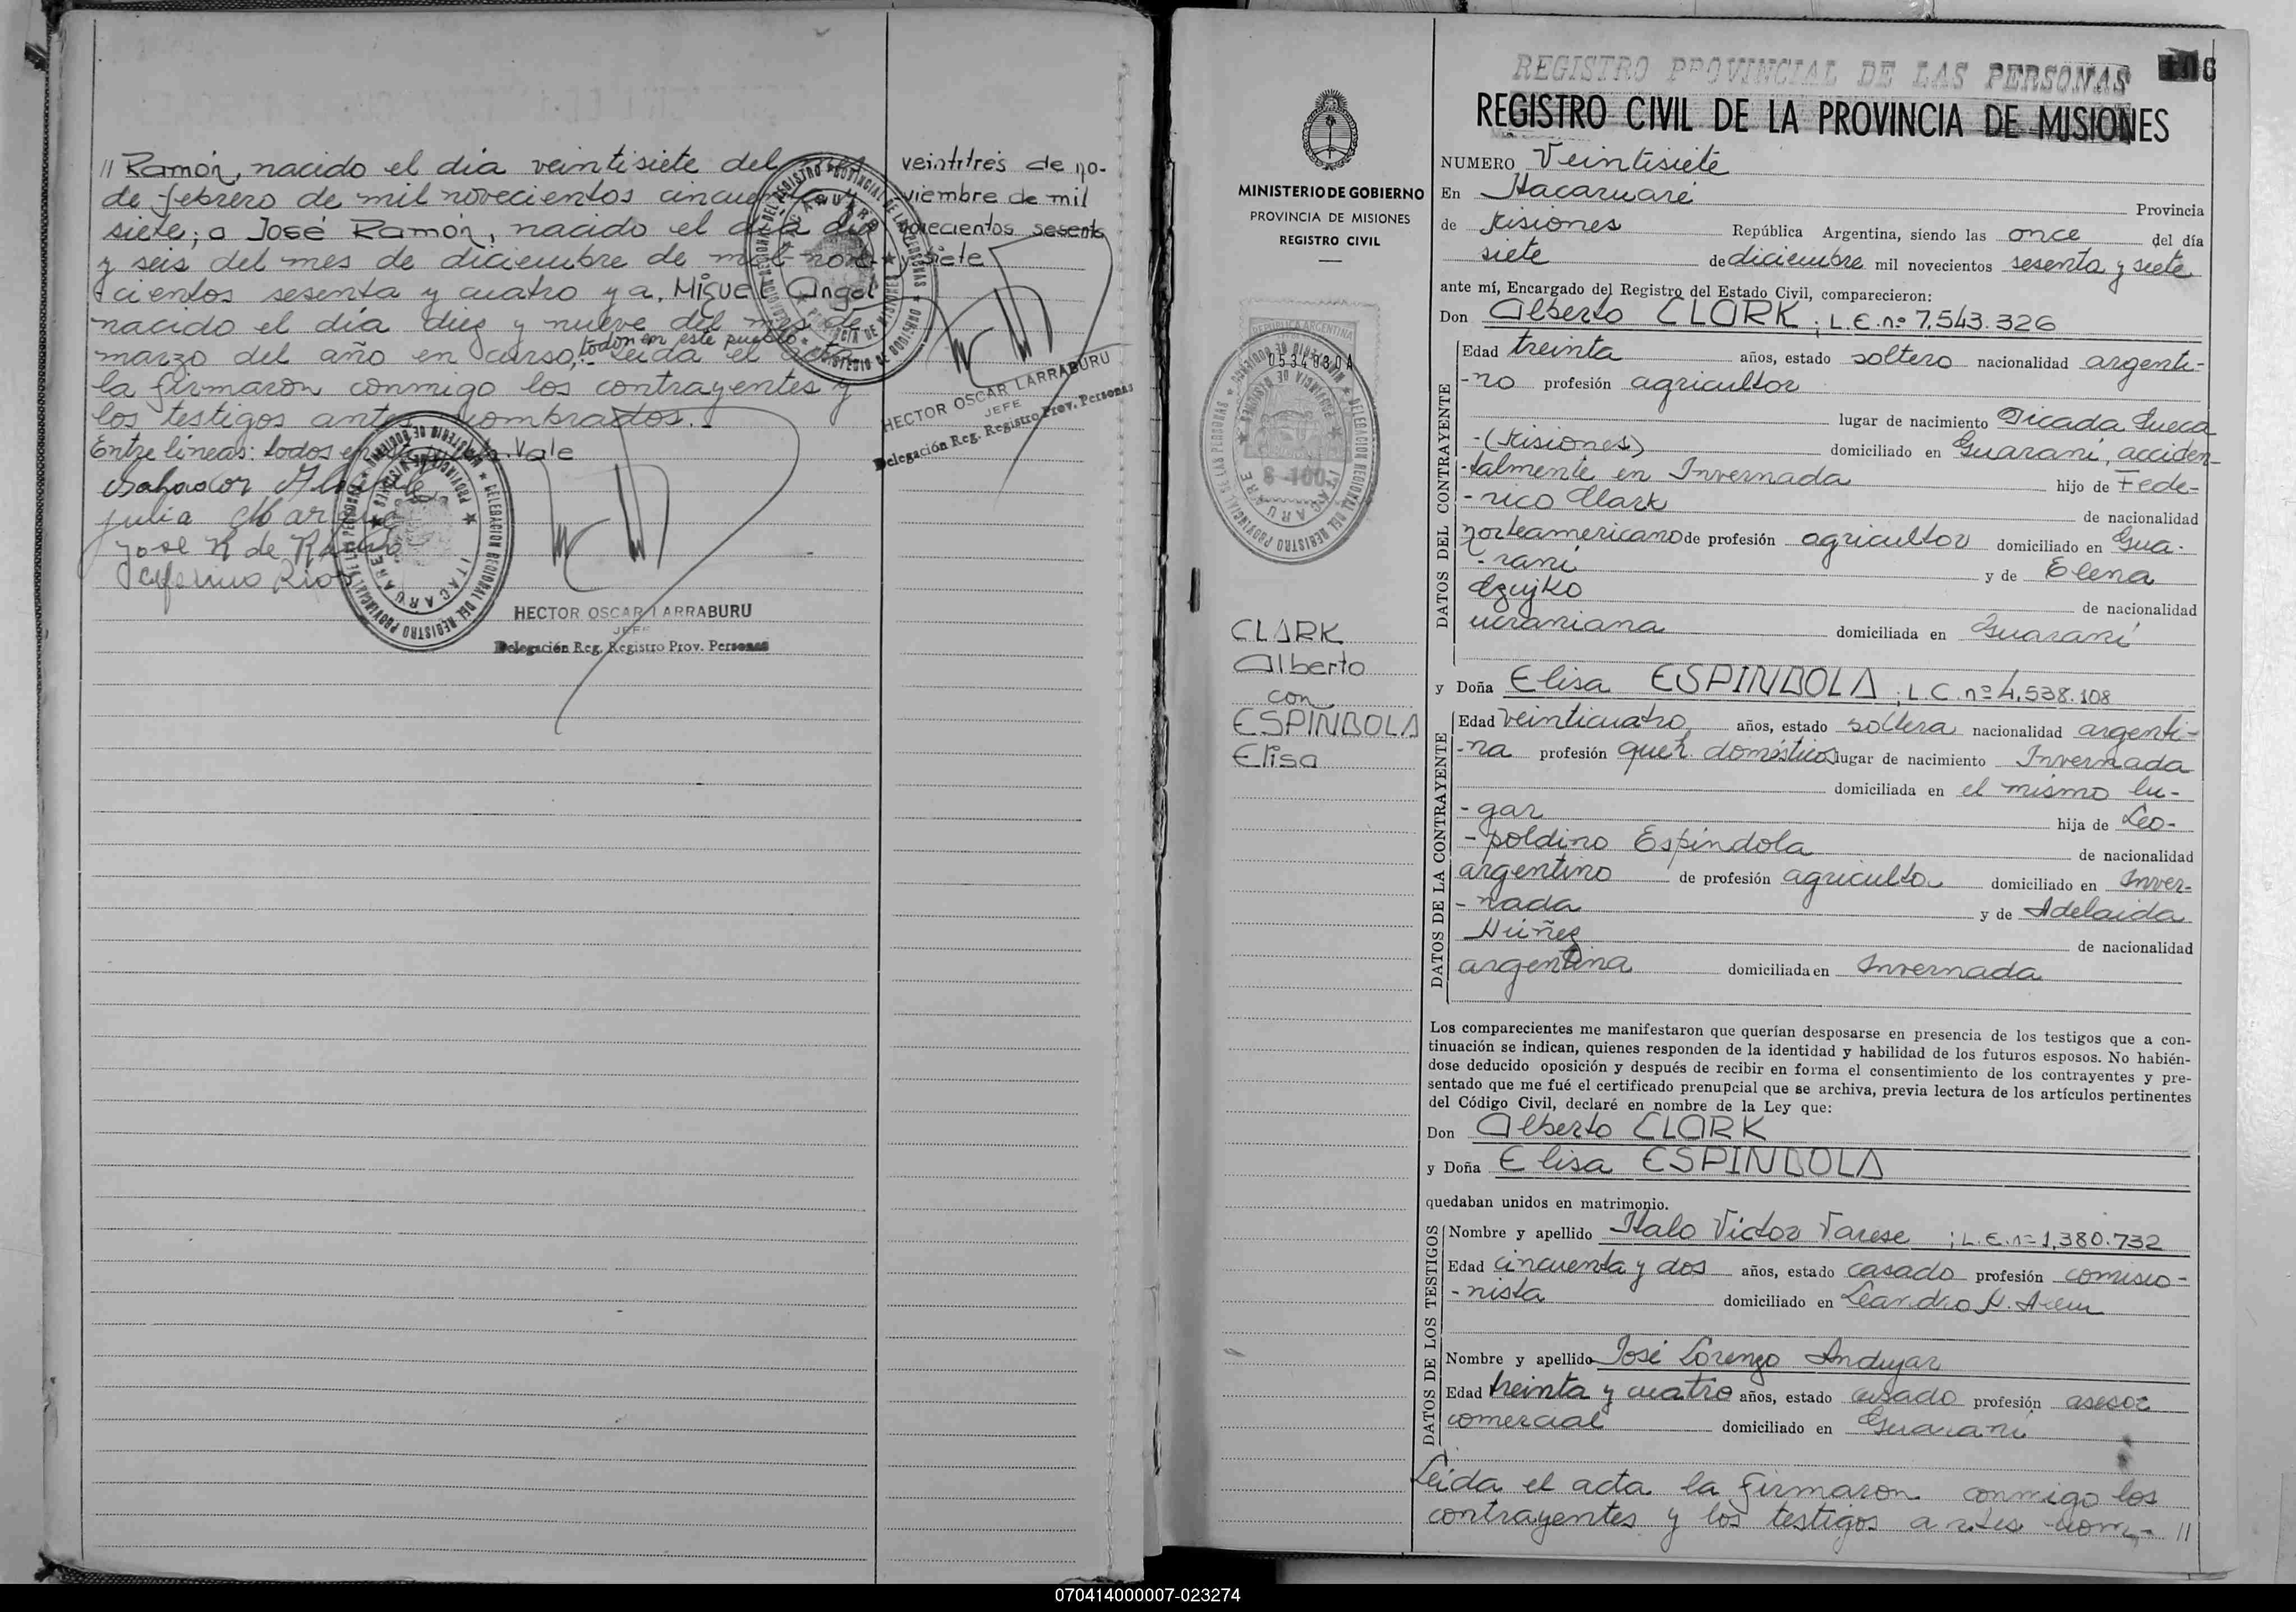 // Ramón, nacido el día veintisiete del
de febrero de mil novecientos cincuen
siete; a José Ramón, nacido el día die
y seis del mes de diciembre de mil nove
cientos sesenta y cuatro y a, Miguel Angel
nacido el día diez y nueve del mes de
todon en este pueblo
marzo del año en curso;- Leida el acta
la firmaron conmigo los contrayentes y
los testigos antes nombrados.
Entre lineas: todos en Vale
julia
José R de
Ceferino Rios
HECTOR OSCAR LARRABURU
JEFE
Delegación Reg. Registro Prov. Personas
veintitrés de no-
viembre de mil
novecientos sesenta
y siete
HECTOR OSCAR LARRABURU
JEFE
Delegación Reg. Registro Prov. Personas
DELEGACION REGIONAL DEL REGISTRO PROVINCIAL DE LAS PERSONAS
ITACARUARE
MINISTERIO DE GOBIERNO
PROVINCIA DE MISIONES
REGISTRO CIVIL
REPUBLICA ARGENTINA
0534030A
$ 100
CLARK
Alberto
con
ESPÍNDOLA
Elisa
REGISTRO PROVINCIAL DE LAS PERSONAS
REGISTRO CIVIL DE LA PROVINCIA DE MISIONES
NUMERO Veintisiete
En Itacaruaré
Provincia
de Misiones República Argentina, siendo las once del día
siete de diciembre mil novecientos sesenta y siete
ante mí, Encargado del Registro del Estado Civil, comparecieron:
Don Alberto CLARK ; L.E. nº 7.543.326
DATOS DEL CONTRAYENTE
Edad treinta años, estado soltero nacionalidad argenti-
-no profesión agricultor
lugar de nacimiento Picada Sueca
-(Misiones) domiciliado en Guaraní, acciden-
-talmente en Invernada hijo de Fede-
-rico Clark de nacionalidad
norteamericano de profesión agricultor domiciliado en Gua-
-raní y de Elena
Dzujko de nacionalidad
ucraniana domiciliada en Guaraní
y Doña Elisa ESPINDOLA ; L.C. nº 4.538.108
DATOS DE LA CONTRAYENTE
Edad veinticuatro años, estado soltera nacionalidad argenti-
-na profesión queh. domésticos lugar de nacimiento Invernada
domiciliada en el mismo lu-
-gar hija de Leo-
-poldino Espíndola de nacionalidad
argentino de profesión agricultor domiciliado en Inver-
-nada y de Adelaida
Núñez de nacionalidad
argentina domiciliada en Invernada
Los comparecientes me manifestaron que querían desposarse en presencia de los testigos que a con-
tinuación se indican, quienes responden de la identidad y habilidad de los futuros esposos. No habién-
dose deducido oposición y después de recibir en forma el consentimiento de los contrayentes y pre-
sentado que me fué el certificado prenupcial que se archiva, previa lectura de los artículos pertinentes
del Código Civil, declaré en nombre de la Ley que:
Don Alberto CLARK
y Doña Elisa ESPINDOLA
quedaban unidos en matrimonio.
DATOS DE LOS TESTIGOS
Nombre y apellido Italo Victor Varese ; L.E. nº 1.380.732
Edad cincuenta y dos años, estado casado profesión comisio-
-nista domiciliado en Leandro N. Alem
Nombre y apellido José Lorenzo Andujar
Edad treinta y cuatro años, estado casado profesión asesor
comercial domiciliado en Guaraní
Leida el acta la firmaron conmigo los
contrayentes y los testigos antes nom- //
070414000007-023274